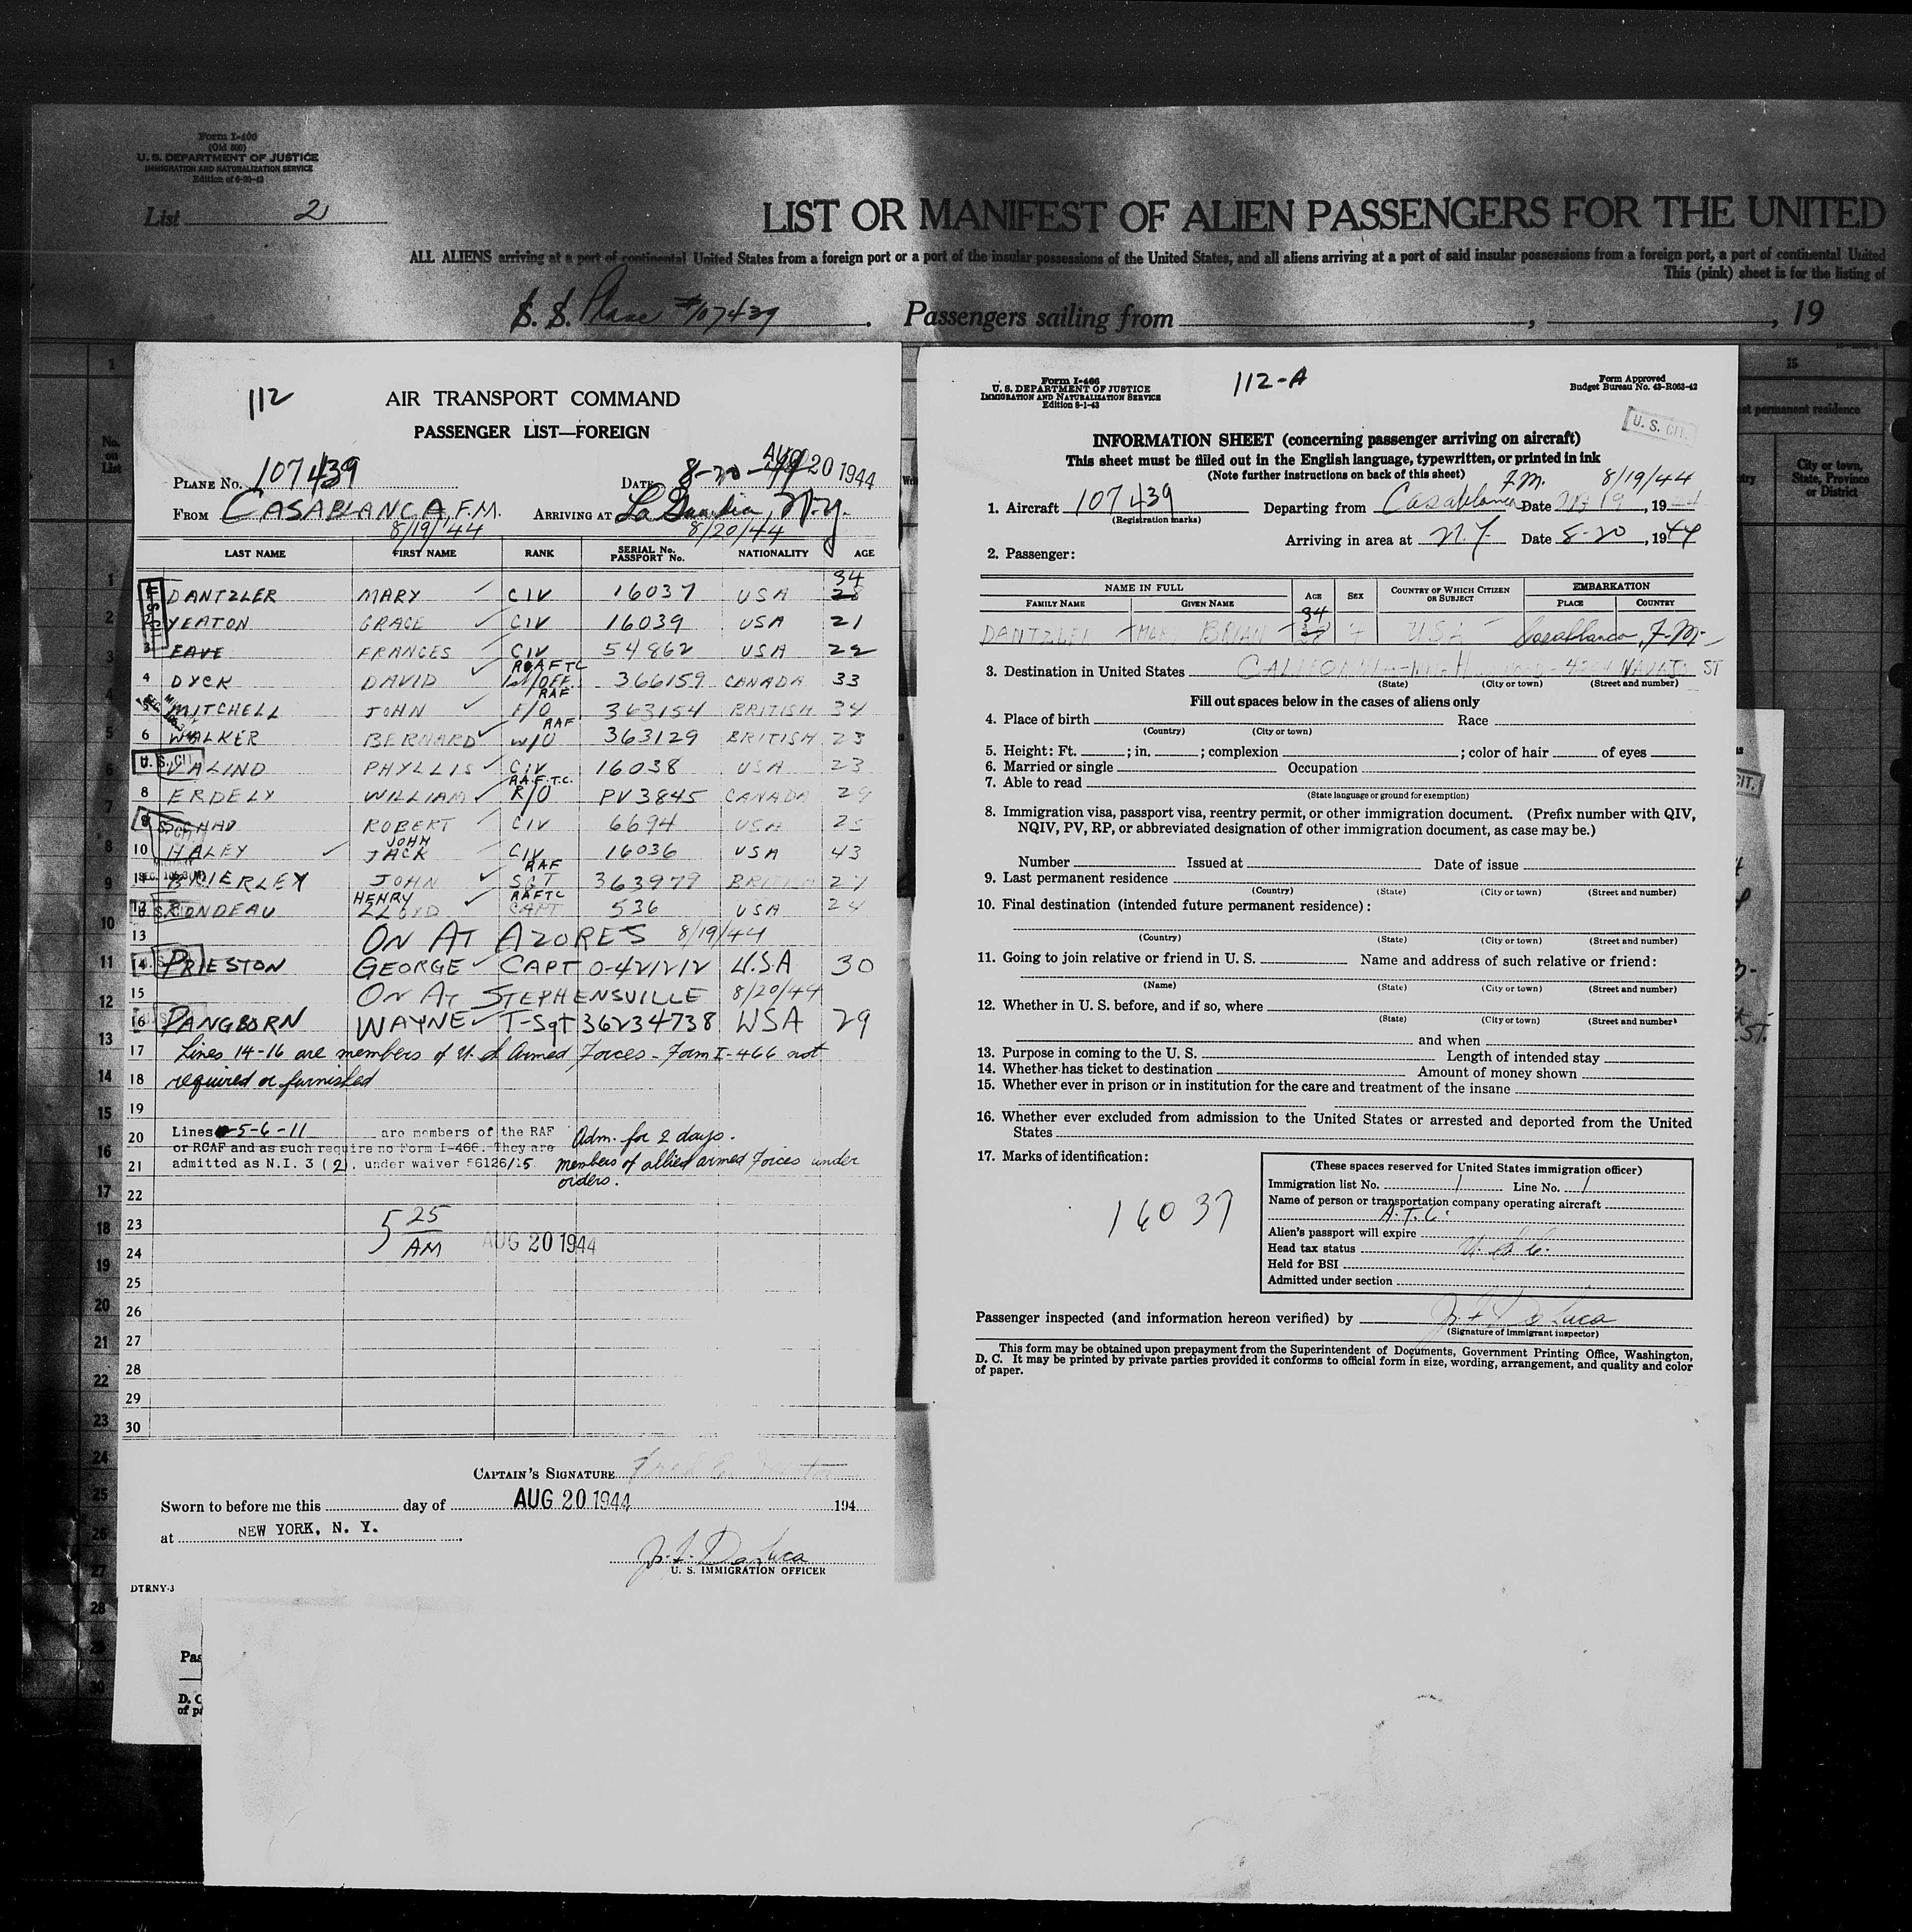 Form I-400
(Old 500)
U. S. DEPARTMENT OF JUSTICE
IMMIGRATION AND NATURALIZATION SERVICE
List 2
LIST OR MANIFEST OF ALIEN PASSENGERS FOR THE UNITED
ALL ALIENS arriving at a port of continental United States from a foreign port or a port of the insular possessions of the United States, and all aliens arriving at a port of said insular possessions from a foreign port, a port of continental United
This (pink) sheet is for the listing of
S. S. Plane #107439. Passengers sailing from , , 19
112
AIR TRANSPORT COMMAND
PASSENGER LIST—FOREIGN
PLANE No. 107439 DATE 8-20-44 AUG 20 1944
FROM CASABLANCA, F.M. ARRIVING AT La Guardia, N.Y.
8/19/44 8/20/44
LAST NAME FIRST NAME RANK SERIAL No. PASSPORT No. NATIONALITY AGE
1 DANTZLER MARY CIV 16037 USA 34 28
2 YEATON GRACE CIV 16039 USA 21
3 EAVE FRANCES CIV 54862 USA 22
4 DYCK DAVID RAFTC OFF. 366159 CANADA 33
5 MITCHELL JOHN RAF F/O 363154 BRITISH 34
6 WALKER BERNARD RAF W/O 363129 BRITISH 23
U. S. CIT. VALIND PHYLLIS CIV 16038 USA 23
8 ERDELY WILLIAM R.A.F.T.C. R/O PV 3845 CANADA 29
9 SCHAD ROBERT CIV 6694 USA 25
10 HALEY JOHN JACK CIV 16036 USA 43
11 BRIERLEY JOHN RAF SGT 363979 BRITISH 27
12 RONDEAU HENRY LLOYD RAFTC CAPT 536 USA 24
13 ON AT AZORES 8/19/44
14 PRIESTON GEORGE CAPT 0-421212 U.S.A 30
15 ON AT STEPHENSVILLE 8/20/44
16 PANGBORN WAYNE T-Sgt 36234738 USA 29
17 Lines 14-16 are members of U.S. Armed Forces - Form I-466 not
18 required or furnished
19
20 Lines 5-6-11 are members of the RAF Adm. for 2 days.
or RCAF and as such require no Form I-466. They are
21 admitted as N.I. 3 (2). under waiver 56126/15 members of allied armed forces under
orders.
22
23 5 25
24 AM AUG 20 1944
25
26
27
28
29
30
CAPTAIN'S SIGNATURE
Sworn to before me this day of AUG 20 1944 194
at NEW YORK, N. Y.
J. F. De Luca
U. S. IMMIGRATION OFFICER
DTRNY-3
Form I-466
U. S. DEPARTMENT OF JUSTICE
IMMIGRATION AND NATURALIZATION SERVICE
Edition 8-1-43
112-A
Form Approved
Budget Bureau No. 43-R063-42
U. S. CIT.
INFORMATION SHEET (concerning passenger arriving on aircraft)
This sheet must be filled out in the English language, typewritten, or printed in ink
(Note further instructions on back of this sheet)
F.M. 8/19/44
1. Aircraft 107439 Departing from Casablanca Date 19, 1944
(Registration marks)
Arriving in area at N.Y. Date 8-20, 1944
2. Passenger:
NAME IN FULL AGE SEX COUNTRY OF WHICH CITIZEN OR SUBJECT EMBARKATION
FAMILY NAME GIVEN NAME PLACE COUNTRY
DANTZLER MARY BRIAN 34 28 F USA Casablanca, F.M.
3. Destination in United States ST
(State) (City or town) (Street and number)
Fill out spaces below in the cases of aliens only
4. Place of birth Race
(Country) (City or town)
5. Height: Ft. ; in. ; complexion ; color of hair of eyes
6. Married or single Occupation
7. Able to read
(State language or ground for exemption)
8. Immigration visa, passport visa, reentry permit, or other immigration document. (Prefix number with QIV,
NQIV, PV, RP, or abbreviated designation of other immigration document, as case may be.)
Number Issued at Date of issue
9. Last permanent residence
(Country) (State) (City or town) (Street and number)
10. Final destination (intended future permanent residence):
(Country) (State) (City or town) (Street and number)
11. Going to join relative or friend in U. S. Name and address of such relative or friend:
(Name) (State) (City or town) (Street and number)
12. Whether in U. S. before, and if so, where
(State) (City or town) (Street and number)
and when
13. Purpose in coming to the U. S. Length of intended stay
14. Whether has ticket to destination Amount of money shown
15. Whether ever in prison or in institution for the care and treatment of the insane
16. Whether ever excluded from admission to the United States or arrested and deported from the United
States
17. Marks of identification:
16037
(These spaces reserved for United States immigration officer)
Immigration list No. 1 Line No. 1
Name of person or transportation company operating aircraft
A.T.C.
Alien's passport will expire
Head tax status U.S.C.
Held for BSI
Admitted under section
Passenger inspected (and information hereon verified) by J. F. De Luca
(Signature of immigrant inspector)
This form may be obtained upon prepayment from the Superintendent of Documents, Government Printing Office, Washington,
D. C. It may be printed by private parties provided it conforms to official form in size, wording, arrangement, and quality and color
of paper.